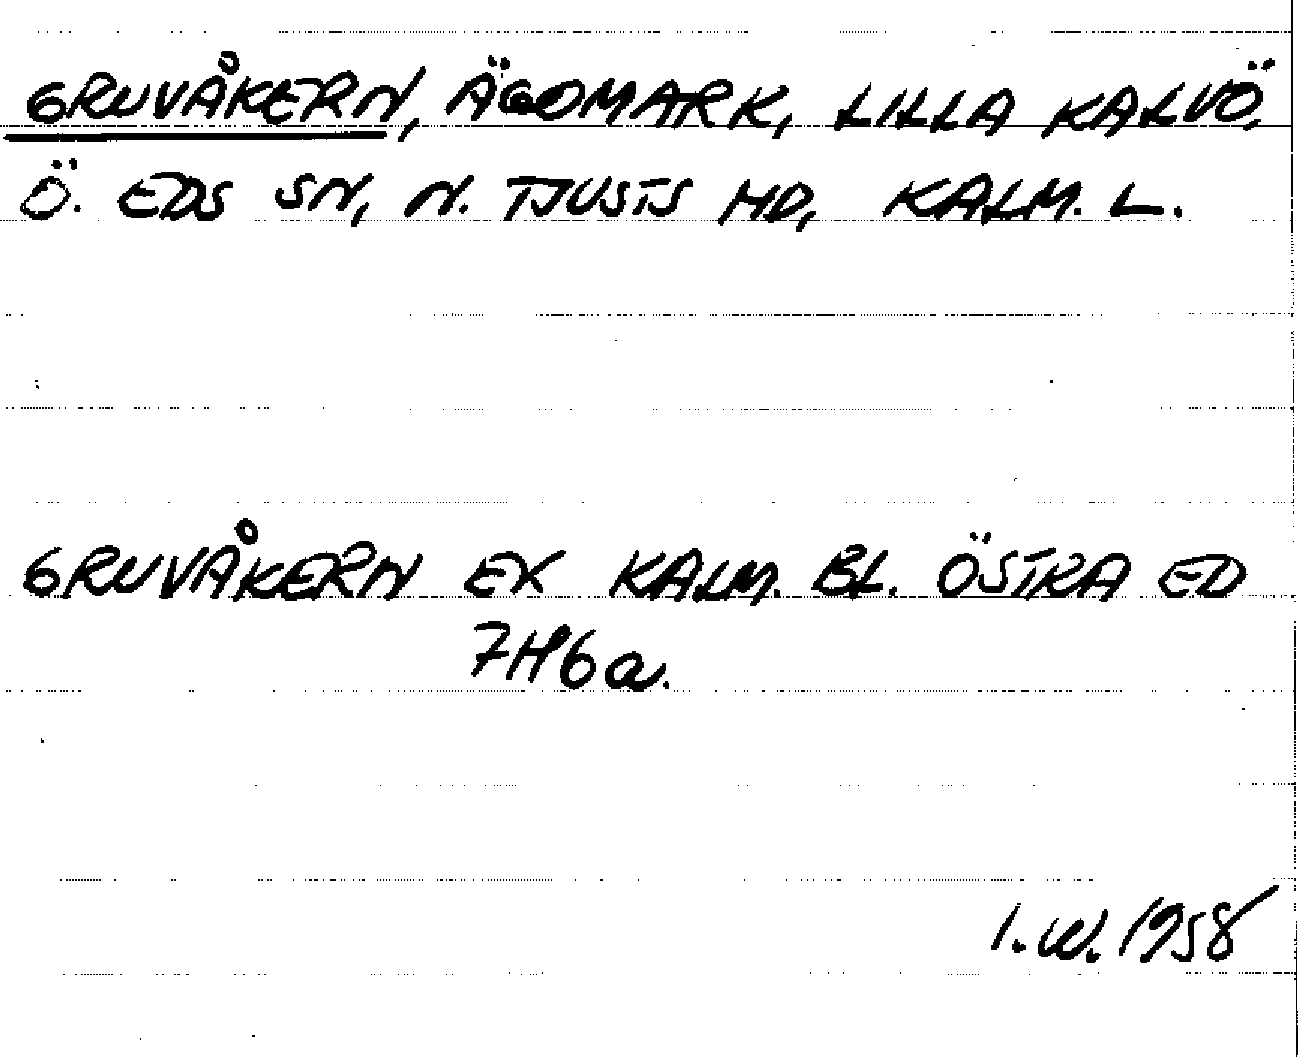 GRUVÅKERN, ÄGOMARK, LILLA KALVÖ,
Ö. EDS SN, N. TJUSTS HD, KALM. L.
GRUVÅKERN EK KALM. BL. ÖSTRA ED
7H6a.
I.W. 1958